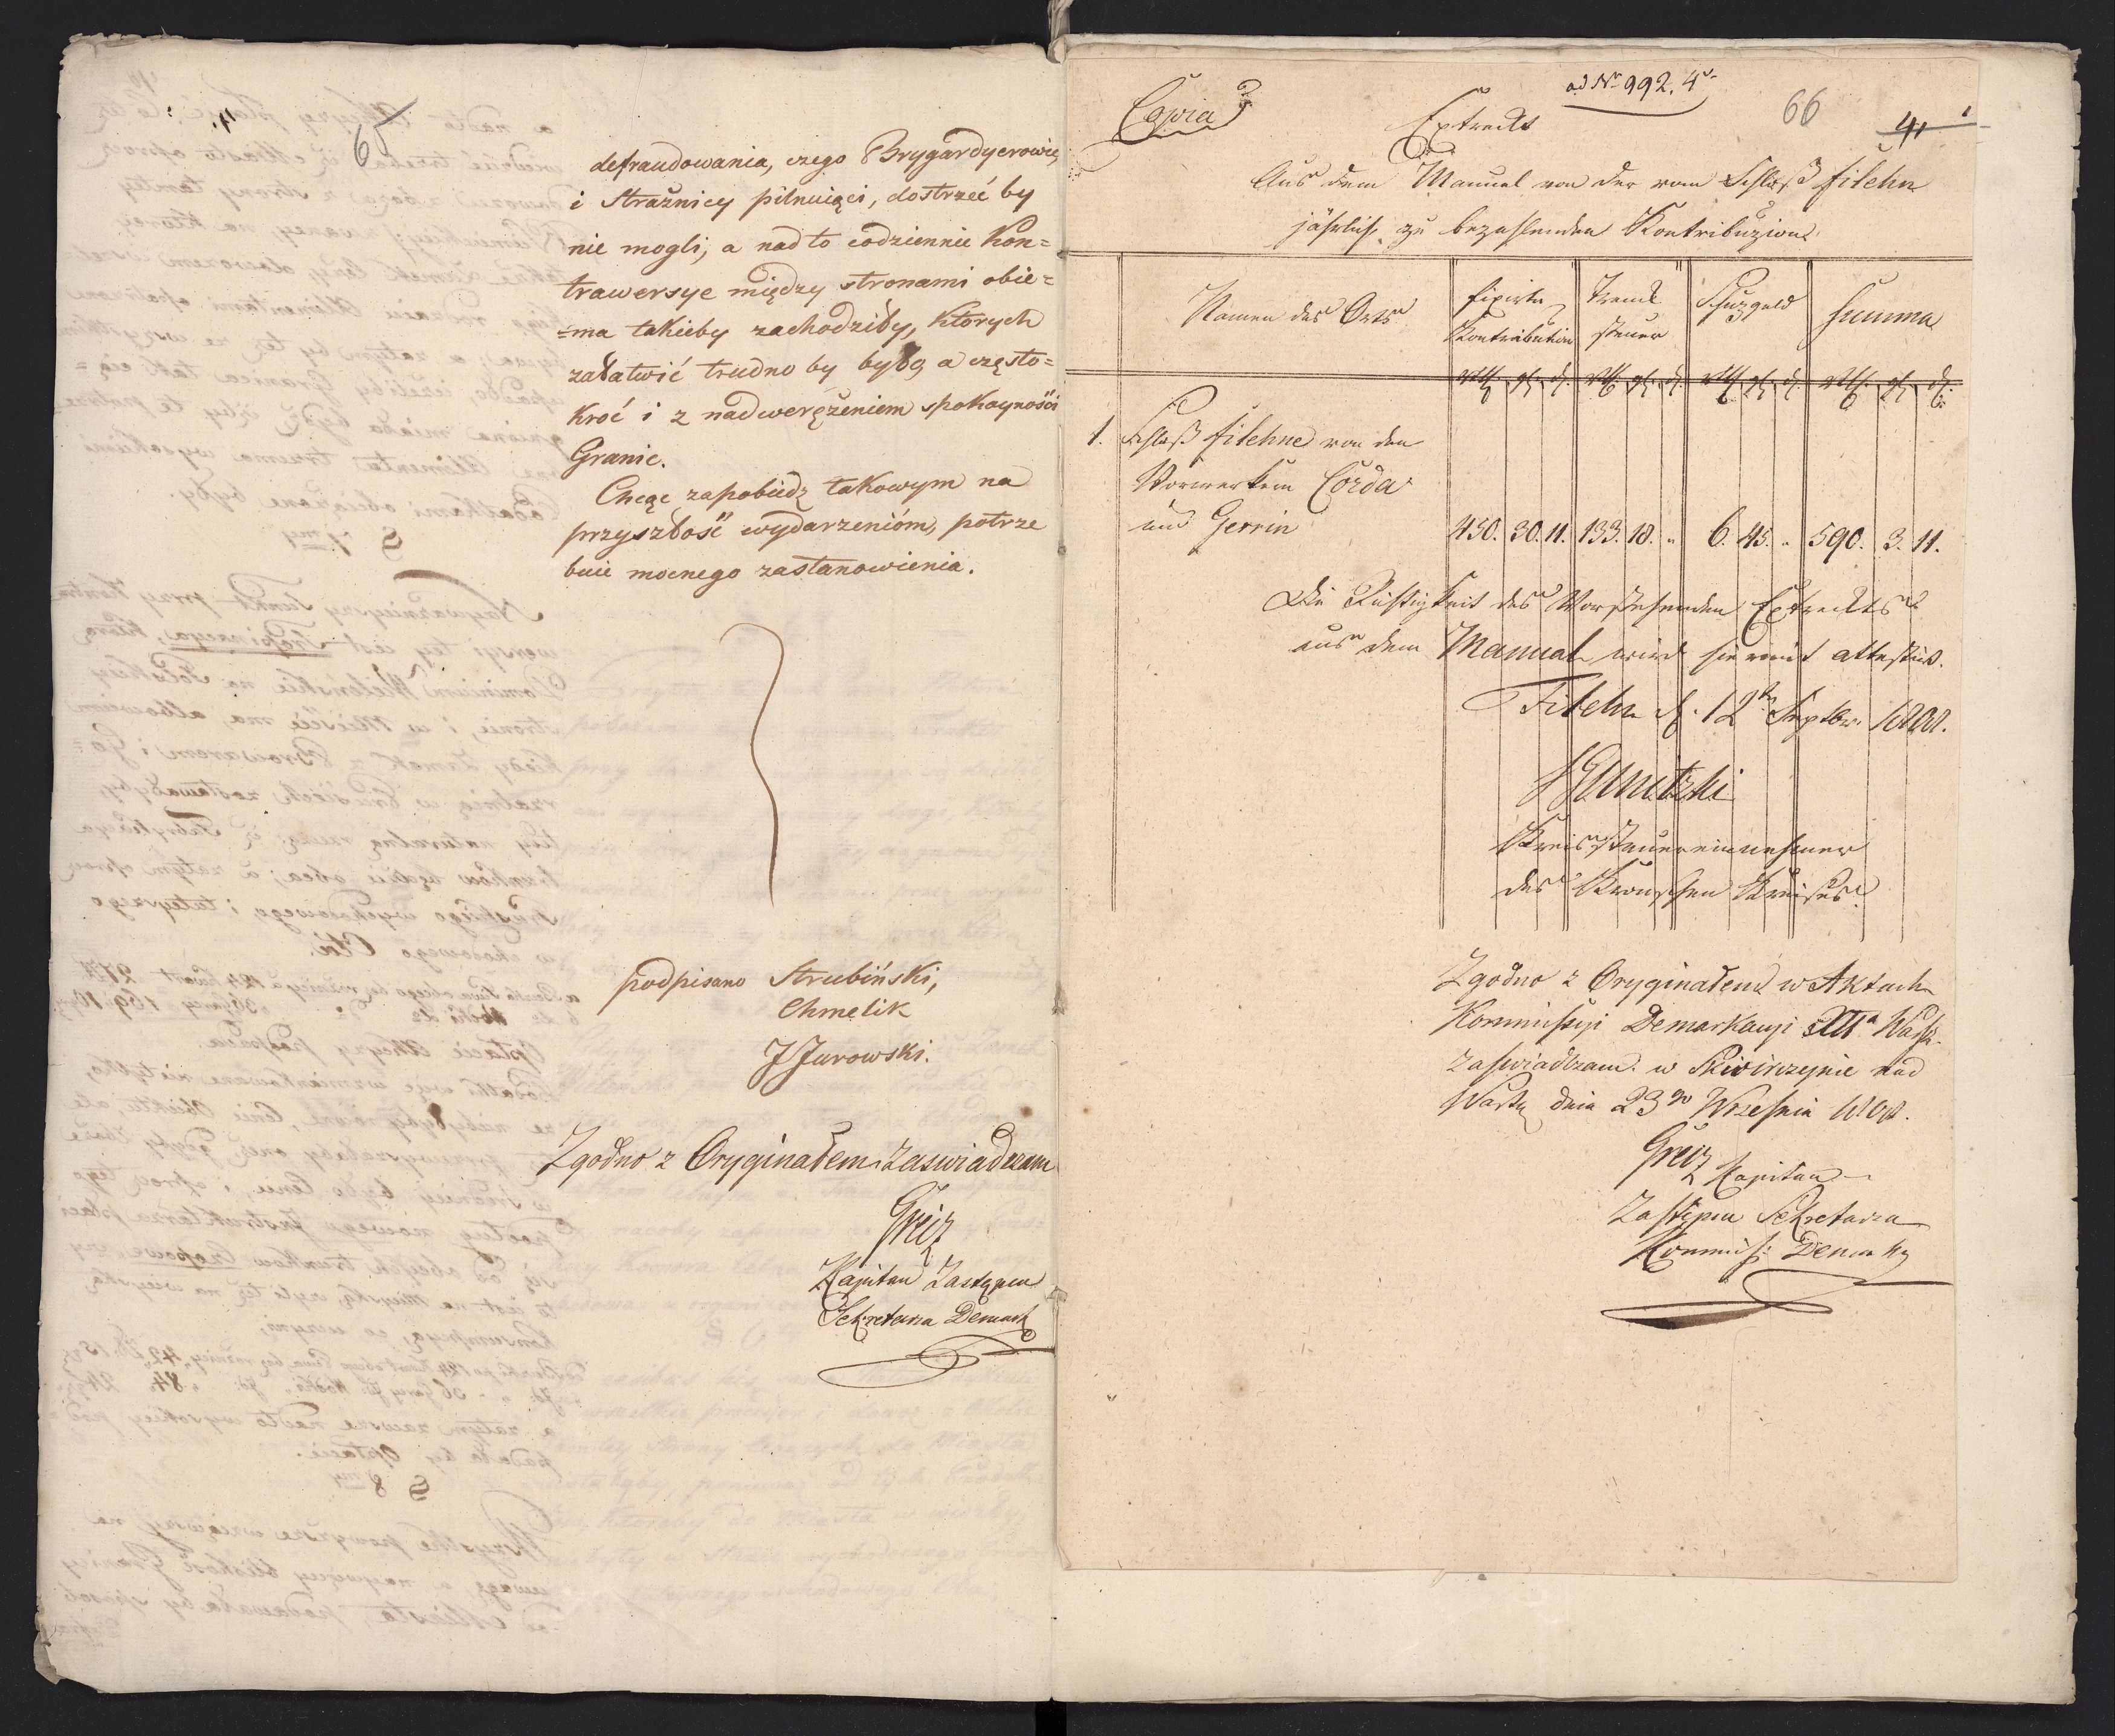 65
defraudowania, czego Brygardyerowie
i Strażnicy pilnuiąci, dostrzeć by
nie mogli; a nadto codziennie Kon=
trawersye między stronami obie=
=ma takieby zachodziły, których
załatwić trudno by było, a często=
kroć i z nadweręzeniem spokoyności
Granic.
Chcąc zapobiedz takowym na
przyszłość wydarzenióm, potrze
buie mocnego zastanowienia.
podpisano Strubiński,
Chmelik
J Jurowski.
Zgodno z Oryginałem Zaswiadczam
Greiz
Kapitan Zastępca
Sekretarza Demark
ad No 992. 4
Copia
66
41
Extract
Aus dem Manual von der vom Schloß Filehn
jährlich zu bezahlenden Kontribuzion
Namen des Orts
fixirte Kontribution
Trank steuer
Schuzgeld
Summa
rtl. gl. d. rtl. gl. d. rtl. gl. d. rtl. gl. d.
1. Schloß Filehne von den
Vorwerkern Corda
und Gerrin 450. 30. 11. 133. 18. „ 6. 45. „ 590. 3. 11.
Die Richtigkeit des Vorstehenden Extracts
aus dem Manual wird hiermit attestirt.
Filehn d. 12 Septbr. 1808.
Kreis Steuereinnehmer
des Kronschen Kreises
Zgodno z Oryginałem w Aktach
Kommissyi Demarkacyi
zaswiadczam. w Skwirzynie nad
Wartą dnia 23go Wrzesnia 1808.
Greiz Kapitan
Zastępca Sekretarza
Kommiss: Demark